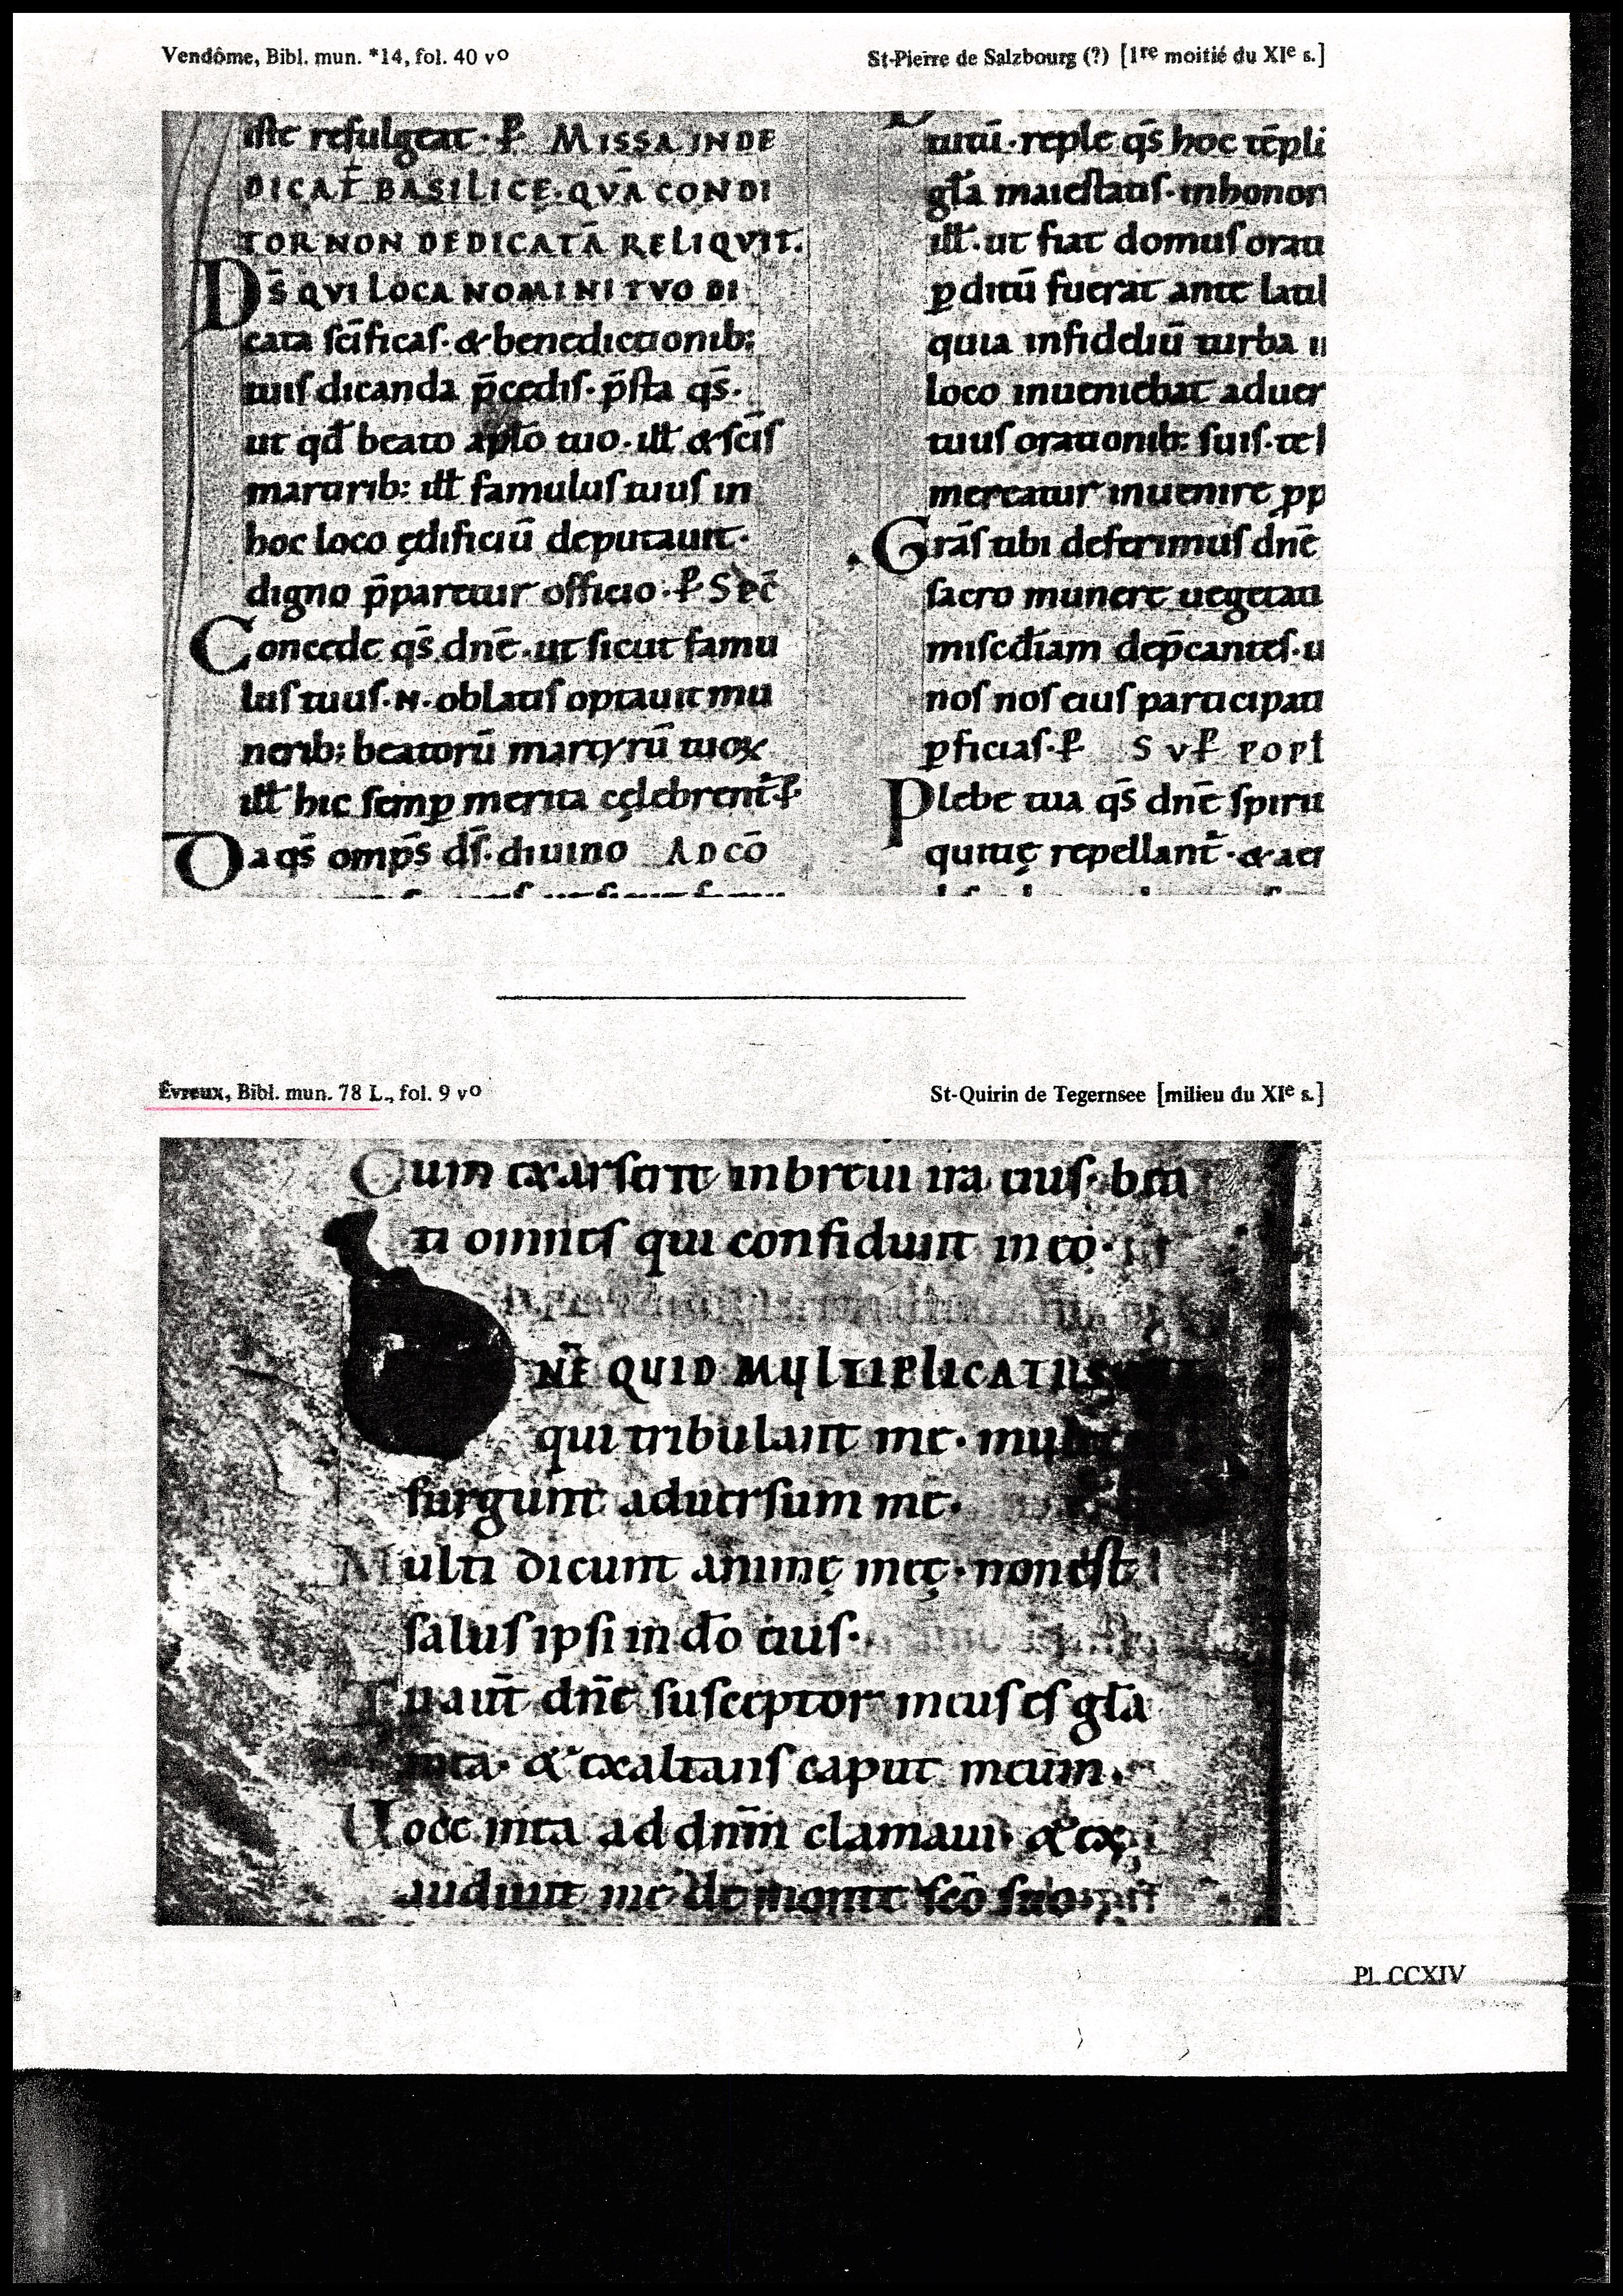 Vendôme, Bibl. mun. *14, fol. 40 vo
St-Pierre de Salzbourg (?) [1re moitié du XIe s.]
iste refulgeat · P̄ MISSA IN DE
DICAT̄ BASILICE · QVĀ CONDI
TOR NON DEDICATĀ RELIQVIT.
D̄S QVI LOCA NOMINI TVO DI
cata sc̄ificas · & benedictionib;
tuis dicanda p̄cedis · p̄sta qs̄ ·
ut qđ beato aplō tuo · ill̄ & sc̄is
martirib; ill̄ famulus tuus in
hoc loco ędificiū deputauit ·
digno p̄paretur officio · P̄ SEC̄
Concede qs̄ dnē · ut sicut famu
lus tuus · N · oblatis optauit mu
nerib; beatorū martyrū tuoꝝ
ill̄ hic semꝑ merita cęlebrent̄ · P̄
Da qs̄ omps̄ ds̄ · diuino AD CŌ
tutū · reple qs̄ hoc tēpli
gl̄a maiestatis · in honor
ill̄ · ut fiat domus orati
ꝑditū fuerat ante latil
quia infideliū turba
loco inueniebat aduer
tuus orationib; suis · te
mereatur inuenire ꝓp
Grās tibi deferimus dnē
sacro munere uegetati
misc̄diam dep̄cantes · u
nos nos eius participati
ꝑficias · P̄ SVP̄ POPL
Plebe tua qs̄ dnē spiri
quitię repellant̄ · & aer
Évreux, Bibl. mun. 78 L., fol. 9 vo
St-Quirin de Tegernsee [milieu du XIe s.]
Cum exarserit in breui ira eius · bea
ti omnes qui confidunt in eo ·
NĒ QUID MULTIPLICATI S
qui tribulant me · mul
surgunt aduersum me ·
Multi dicunt animę meę · non est
salus ipsi in dō eius ·
Tu aut̄ dnē susceptor meus es gl̄a
mea · & exaltans caput meum ·
Uoce mea ad dnm̄ clamaui · & ex
audiuit me de monte scō suo
Pl. CCXIV